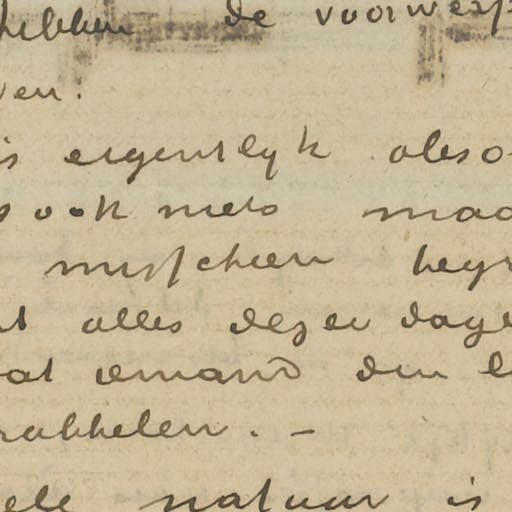 hebben de voorwerp
ven.
is eigenlyk abso
ook niets maa
misschien begr
at alles dezer dage
at iemand den
rabbelen. -
ele natuur is